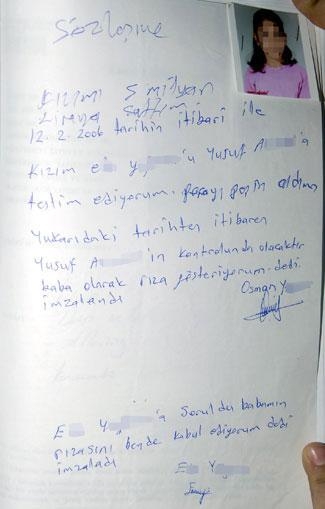 Sözleşme
Kızımı 5 milyan
Liraya sattım
12.2.2006 tarihin itibari ile
Kızım e Y 'ı Yusuf A 'a
teslim ediyorum. parayı peşin aldım
Yukarıdaki tarihten itibaren
Yusuf A in kontrolunda olacaktır
baba olarak rıza gösteriyorum. dedi.
imzalandı Osman Y
E Y 'a Soruldu babamın
rızasını bende kabul ediyorum dedi
imzaladı E Y